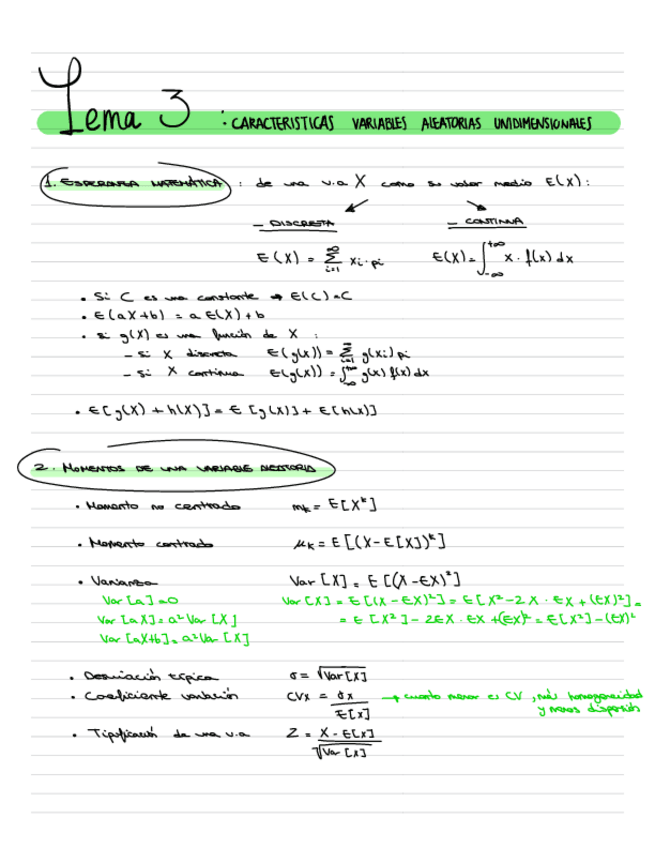 Tema 3 : CARACTERISTICAS VARIABLES ALEATORIAS UNIDIMENSIONALES
1. ESPERANZA MATEMÁTICA : de una v.a X como su valor medio E(X):
- DISCRETA - CONTINUA
E(X) = ∑_{i=1}^{∞} xi·pi E(X)=∫_{-∞}^{+∞} x·f(x)dx
• Si C es una constante → E(C)=C
• E(aX+b) = a E(X)+b
• si g(X) es una función de X :
- si X discreta E(g(X))=∑_{i=1}^{∞} g(xi)pi
- si X continua E(g(X))=∫_{-∞}^{+∞} g(x)f(x)dx
• E[g(X)+h(X)]=E[g(X)]+E[h(X)]
2. MOMENTOS DE UNA VARIABLE ALEATORIA
• Momento no centrado mk=E[X^k]
• Momento centrado μk=E[(X-E[X])^k]
• Varianza Var[X]=E[(X-EX)²]
Var[a]=0 Var[X]=E[(X-EX)²]=E[X²-2X·EX+(EX)²]=
Var[aX]=a²Var[X] =E[X²]-2EX·EX+(EX)²=E[X²]-(EX)²
Var[aX+b]=a²Var[X]
• Desviación típica σ=√Var[X]
• Coeficiente variación CVx = σx / E[X] → cuanto menor es CV, más homogeneidad
y menos dispersión
• Tipificación de una v.a Z = X-E[X] / √Var[X]